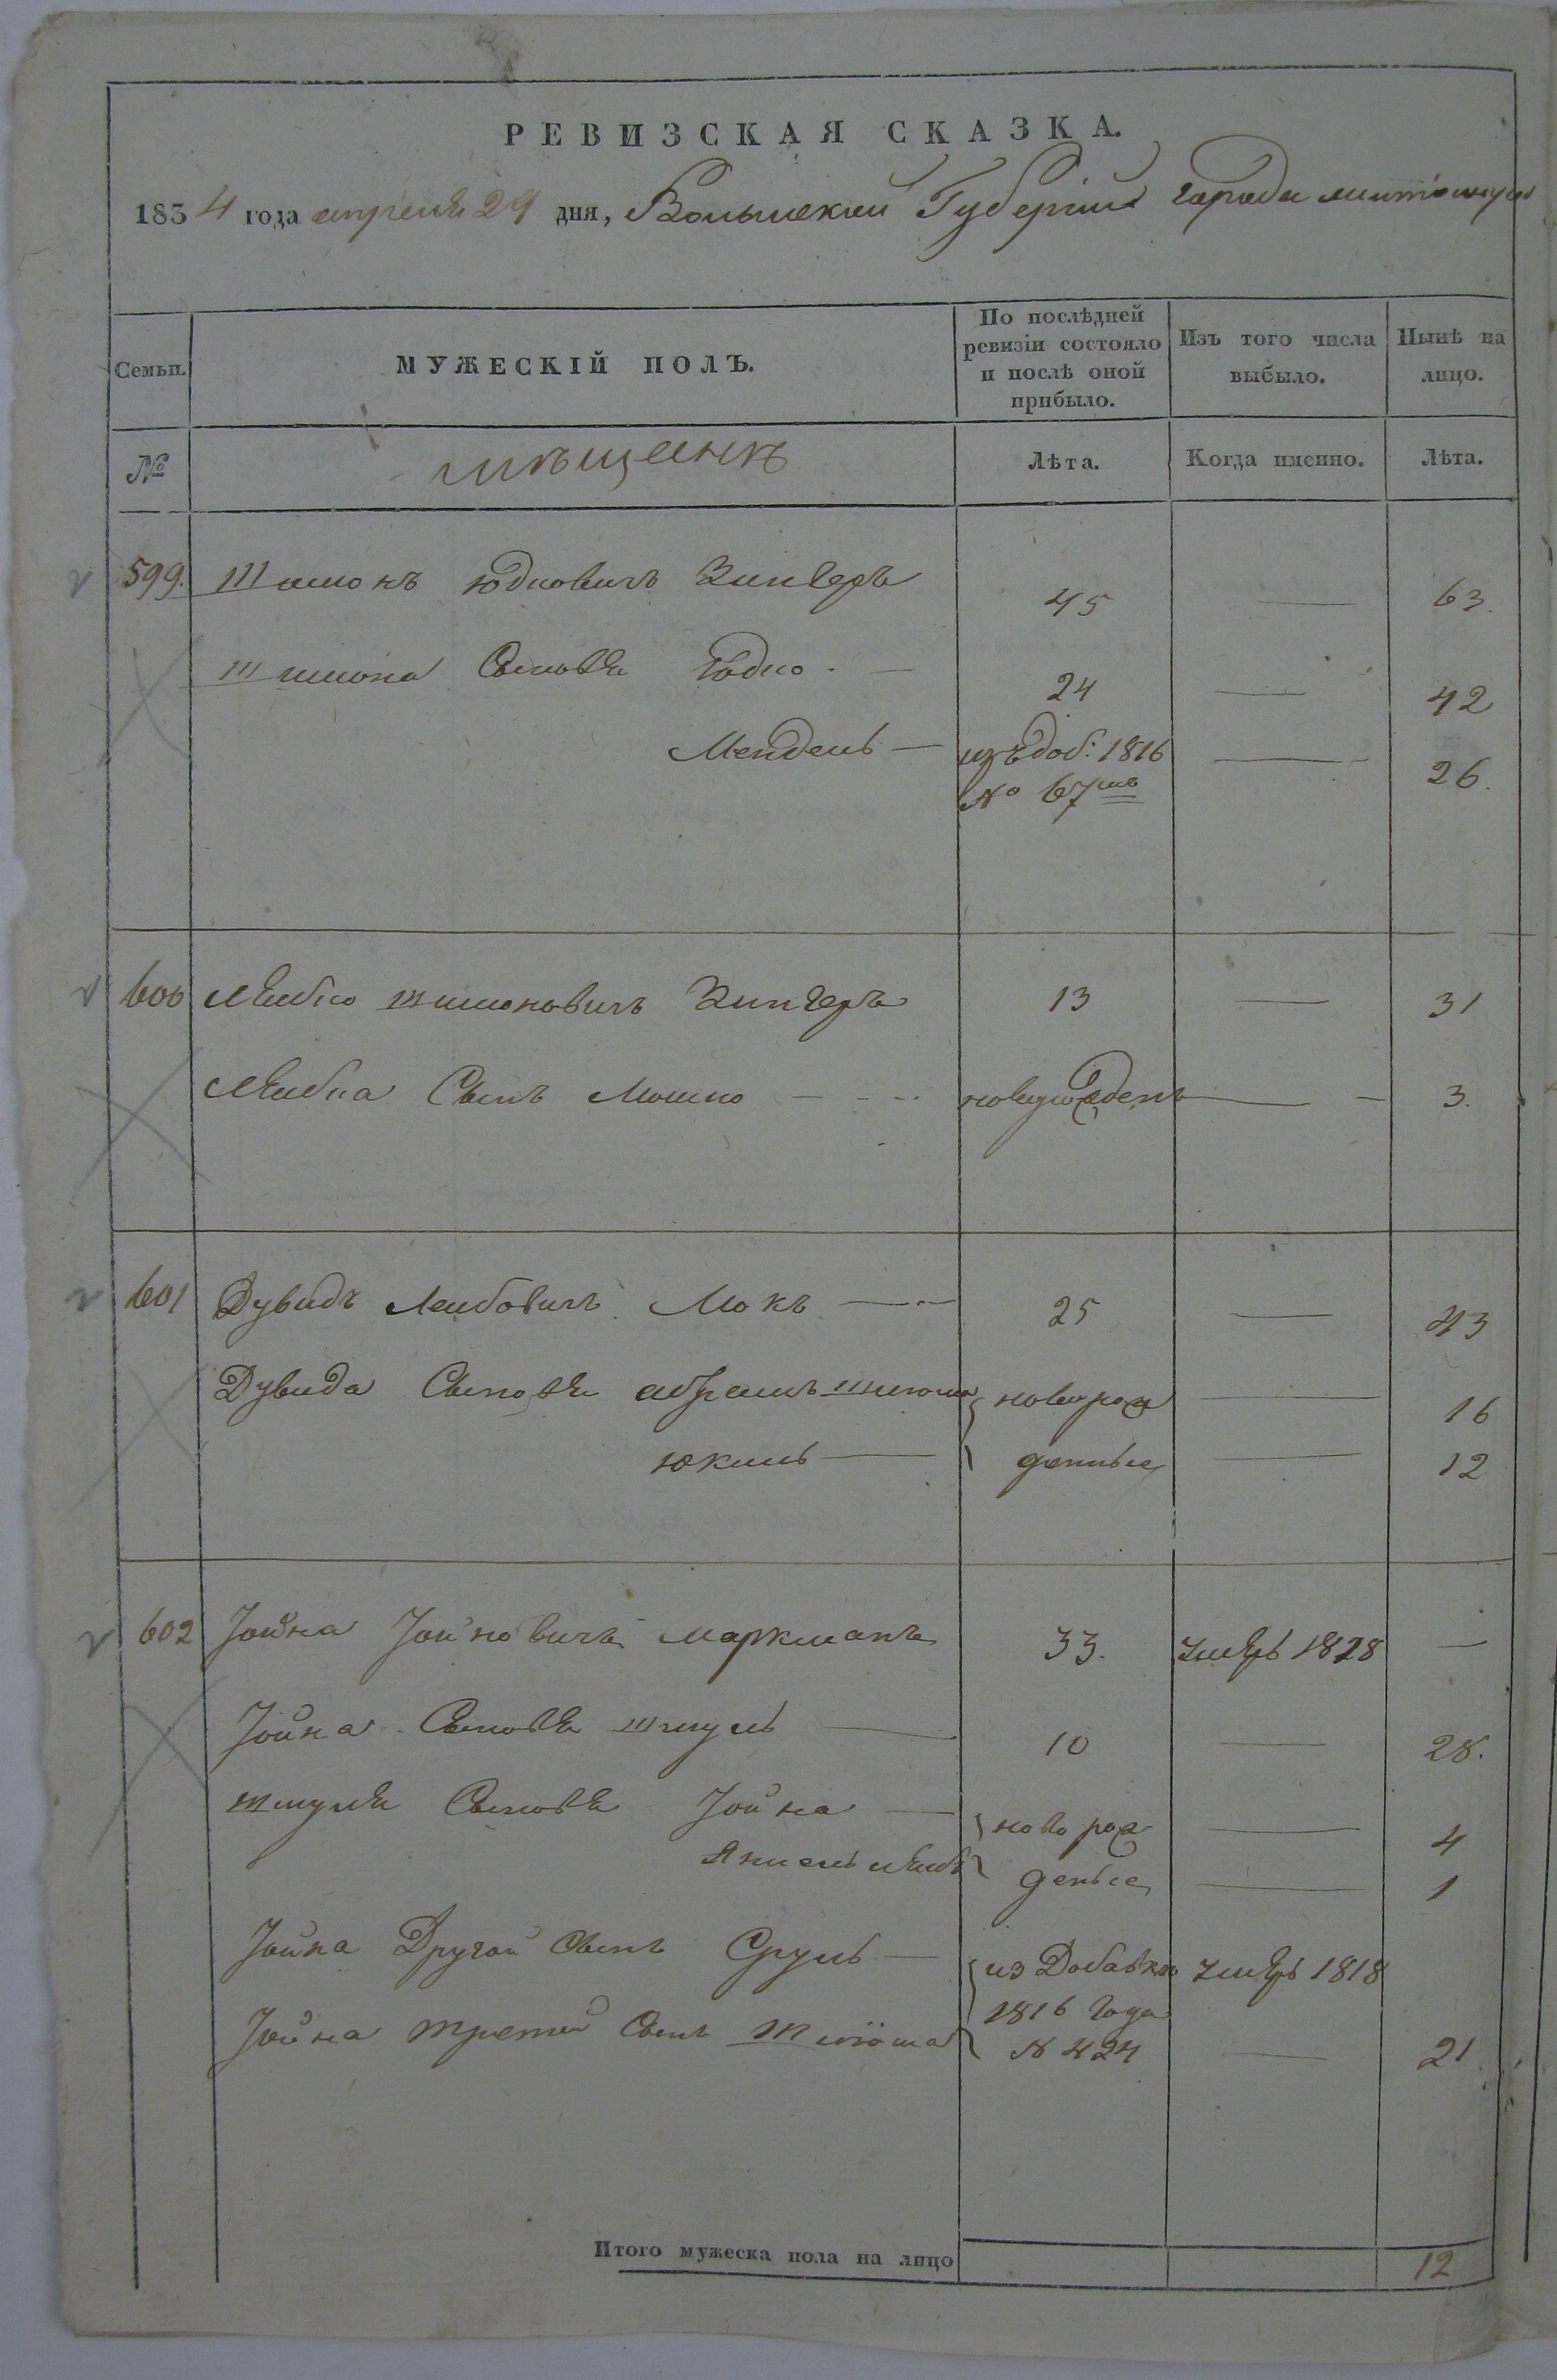 РЕВИЗСКАЯ СКАЗКА.
1834 года апреля 29 дня, Волынской Губернии города
Семьи. МУЖЕСКІЙ ПОЛЪ. По послѣдней ревизіи состояло и послѣ оной прибыло. Изъ того числа выбыло. Нынѣ на лицо.
№ мѣщанѣ Лѣта. Когда именно. Лѣта.
599. Шимонъ Юдковичъ Зингеръ 45 — 63.
Шимона Сыновья Юдко — 24 — 42
Мендель — изъ доб: 1816 — 26.
№ 67мъ
600 Лейбко Шимоновичъ Зингеръ 13 — 31
Лейбка Сынъ Мошко — новорожденъ — 3.
601 Дувидъ Лейбовичъ Мокъ — 25 — 43
Дувида Сыновья Абрамъ Шлиома новорож — 16
Юкиль — денные — 12
602 Іойна Іойновичъ Маркманъ 33. умеръ 1828 —
Іойна Сыновья Шмуль — 10 — 28.
Шмуля Сыновья Іойна — новорож — 4
Янкель Лейбъ деные — 1
Іойна Другой Сынъ Сруль — из Добавков умеръ 1818
1816 Года
Іойна третій Сынъ Шліома N 424 — 21
Итого мужеска пола на лицо 12